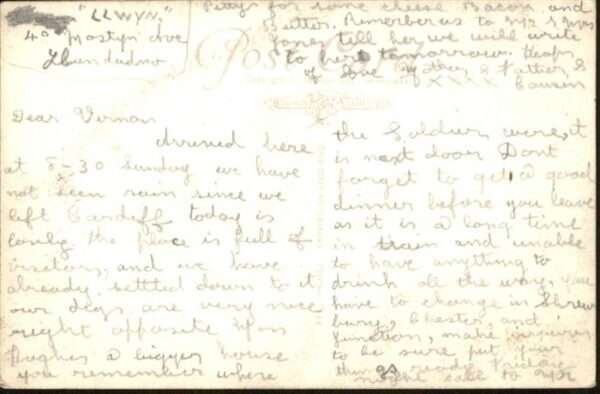 "LLWYN,"
40 Mostyn Ave
Llandudno
Dear Vernon
Arrived here
at 8-30 Sunday we have
not seen rain since we
left Cardiff today is
lovely the place is full of
visitors, and we have
already settled down to it
our digs are very nice
right opposite
Hughes a bigger house
you remember where
the Soldiers were, it
is next door Dont
forget to get a good
dinner before you leave
as it is a long time
in train and unable
to have anything to
drink all the way, you
have to change in Shrews
bury, Chester, and
Junction, make inquiries
to be sure put your
things ready Friday
night call to
for some cheese Bacon and
Butter. Remember us to Mr & Mrs
Jones tell her we will write
to her tomorrow. Heaps
of love Mother & Father, &
XXXX Cousin
POST CARD